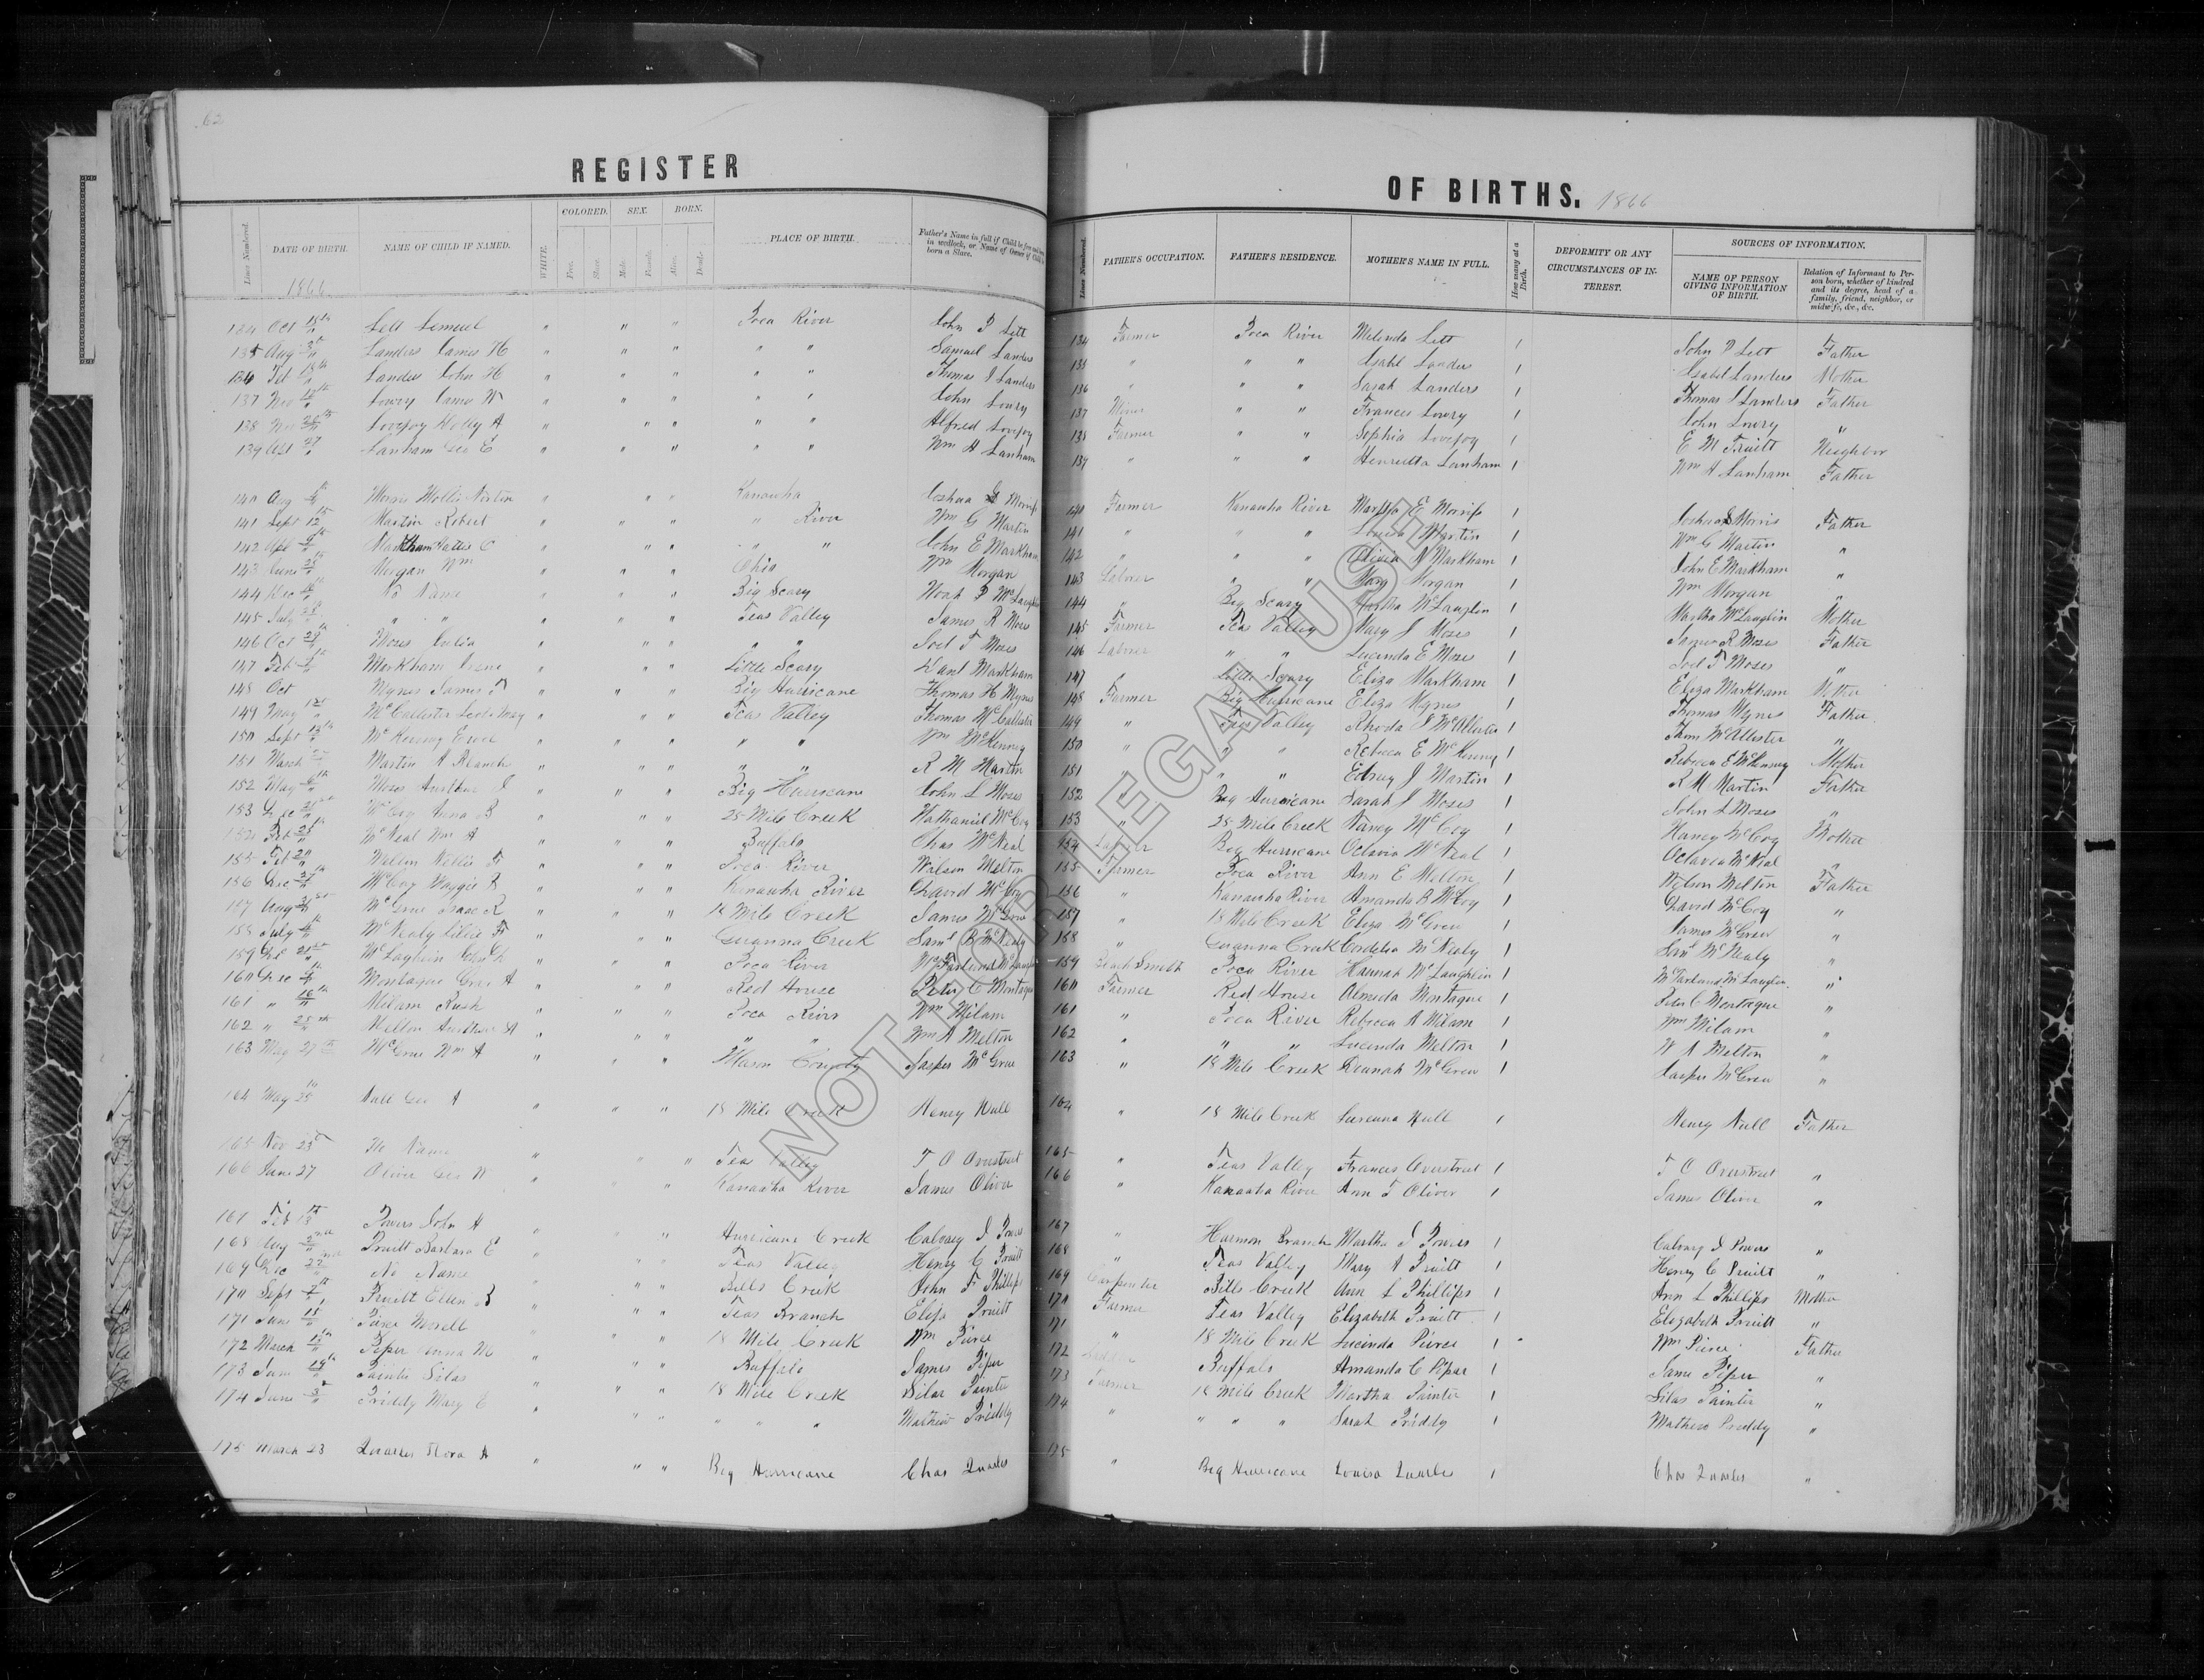 62
REGISTER
OF BIRTHS. 1866
Lines Numbered. DATE OF BIRTH. NAME OF CHILD IF NAMED. WHITE. COLORED. Free. Slave. SEX. Male. Female. BORN. Alive. Dead. PLACE OF BIRTH. Father's Name in full if Child be free and born in wedlock, or Name of Owner of Child if born a Slave.
Lines Numbered. FATHER'S OCCUPATION. FATHER'S RESIDENCE. MOTHER'S NAME IN FULL. How many at a Birth. DEFORMITY OR ANY CIRCUMSTANCES OF INTEREST. SOURCES OF INFORMATION. NAME OF PERSON GIVING INFORMATION OF BIRTH. Relation of Informant to Person born, whether of kindred and its degree, head of a family, friend, neighbor, or midwife, &c., &c.
1866
134 Oct 15th Lett Lemuel " " " Poca River John P Lett 134 Farmer Poca River Melinda Lett 1 John P Lett Father
135 Aug Landers James H " " " " " Samuel Landers 135 " " " Isabel Landers 1 Isabel Landers Mother
136 Feb 18th Landers John H " " " " " Thomas I Landers 136 " " " Sarah Landers 1 Thomas I Landers Father
137 Nov Lowry James W " " " " " John Lowry 137 " " Frances Lowry 1 John Lowry "
138 Lovejoy Holly A " " " " " Alfred Lovejoy 138 Farmer " " Sophia Lovejoy 1 E M Pruitt Neighbor
139 Lanham Geo E " " " " " Wm H Lanham 139 " " " Henrietta Lanham 1 Wm H Lanham Father
140 Aug Morris Mollie " " " Kanawha Joshua S Morris 140 Farmer Kanawha River Martha E Morris 1 Joshua S Morris Father
141 Sept 12 Martin Robert " " " " River Wm G Martin 141 " " " Louisa Martin 1 Wm G Martin "
142 Apl Markham Hattie C " " " " " John E Markham 142 " " " Olivia N Markham 1 John E Markham "
143 June Morgan Wm " " " Ohio Wm Morgan 143 Laborer " " Mary Morgan 1 Wm Morgan "
144 Dec No Name " " " Big Scary Noah P McLaughlin 144 " Big Scary Martha McLauglin 1 Martha McLauglin Mother
145 July " " " " " Teas Valley James R Moses 145 Farmer Teas Valley Mary J Moses 1 James R Moses Father
146 Oct Moses Julia " " " " " Joel T Moses 146 Laborer " " Lucinda E Moses 1 Joel T Moses "
147 Feb Markham Irene " " " Little Scary Danl Markham 147 " Little Scary Eliza Markham 1 Eliza Markham Mother
148 Oct Mynes James " " " Big Hurricane Thomas H Mynes 148 Farmer Big Hurricane Eliza Mynes 1 Thomas Mynes Father
149 May McCallister May " " " Teas Valley Thomas McCallister 149 " Teas Valley Rhoda J McAllister 1 Thom McAllister "
150 Sept 13th McKenney " " " " " Wm McKenney 150 " " " Rebecca E McKenney 1 Rebecca E McKenney Mother
151 March Martin A Blanch " " " " " R M Martin 151 " " " Edney J Martin 1 R M Martin Father
152 May Moses Arulhur " " " Big Hurricane John L Moses 152 " Big Hurricane Sarah J Moses 1 John L Moses "
153 Dec McCoy Anna B " " " 25 Mile Creek Nathaniel McCoy 153 " 25 Mile Creek Nancy McCoy 1 Nancy McCoy Mother
154 Feb McNeal Wm A " " " Buffalo Chas McNeal 154 Big Hurricane Octavia McNeal 1 Octavia McNeal "
155 Feb Melton Nellie F " " " Poca River Wilson Melton 155 Farmer Poca River Ann E Melton 1 Wilson Melton Father
156 Dec McCoy Maggie B " " " Kanawha River David McCoy 156 " Kanawha River Amanda B McCoy 1 David McCoy "
157 Aug McGrew Isaac R " " " 18 Mile Creek James McGrew 157 " 18 Mile Creek Eliza McGrew 1 James McGrew "
158 July McNealy Lillie F " " " Guanna Creek Saml B McNealy 158 " Guanna Creek Cordelia McNealy 1 Saml McNealy "
159 McLaghlin " " " Poca River McFarland McLaughlin 159 Black Smith Poca River Hannah McLaughlin 1 McFarland McLauglin "
160 Dec Montague A " " " Red House Peter C Montague 160 Farmer Red House Almeda Montague 1 Peter C Montague "
161 " Milam Rush " " " Poca River Wm Milam 161 " Poca River Rebecca A Milam 1 Wm Milam "
162 " 25 Melton A " " " " " Wm A Melton 162 " " " Lucinda Melton 1 W A Melton "
163 May 27 McGrew Wm A " " " Mason County Jasper McGrew 163 " 18 Mile Creek McGrew 1 Jasper McGrew "
164 May 25 Null Geo A " " " 18 Mile Creek Henry Null 164 " 18 Mile Creek Null 1 Henry Null Father
165 Nov 25 No Name " " " Teas Valley T O Overstreet 165 " Teas Valley Frances Overstreet 1 T O Overstreet "
166 Jan 27 Oliver Geo W " " " Kanawha River James Oliver 166 " Kanawha River Ann T Oliver 1 James Oliver "
167 Feb 13 Powers John H " " " Hurricane Creek Calvary J Powers 167 " Harmon Branch Martha J Powers 1 Calvary J Powers "
168 Aug Pruitt Barbara E " " " Teas Valley Henry C Pruitt 168 " Teas Valley Mary A Pruitt 1 Henry C Pruitt "
169 Dec 22 No Name " " " Bills Creek John F Phillips 169 Carpenter Bills Creek Ann L Phillips 1 Ann L Phillips Mother
170 Sept Pruitt Ellen B " " " Teas Branch Eliga Pruitt 170 Farmer Teas Valley Elizabeth Pruitt 1 Elizabeth Pruitt "
171 June 15 Pierce Morell " " " 18 Mile Creek Wm Pierce 171 " 18 Mile Creek Lucinda Pierce 1 Wm Pierce Father
172 March Piper Anna M " " " Buffalo James Piper 172 Buffalo Amanda C Piper 1 James Piper "
173 Jan 19th Painter Silas " " " 18 Mile Creek Silas Painter 173 Farmer 18 Mile Creek Martha Painter 1 Silas Painter "
174 June Priddy Mary E " " " " " " Mathew Priddy 174 " " " " Sarah Priddy 1 Mathew Priddy "
175 March 23 Quarles Flora A " " " Big Hurricane Chas Quarles 175 " Big Hurricane Louisa Quarles 1 Chas Quarles "
NOT FOR LEGAL USE